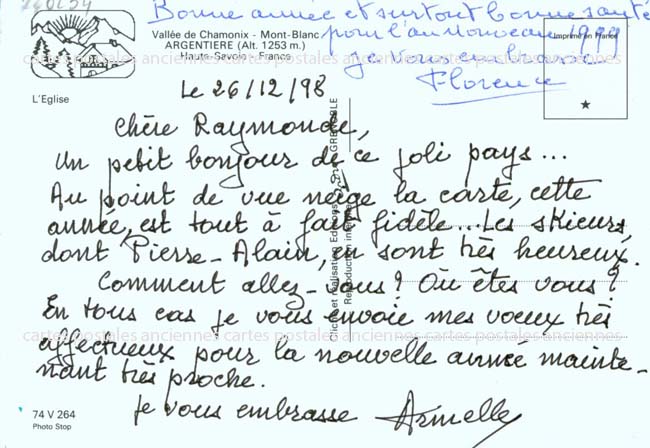 260254
Bonne année et surtout bonne santé
pour l'an nouveau 1999
je vous embrasse
Florence
Vallée de Chamonix - Mont-Blanc
ARGENTIERE (Alt. 1253 m.)
Haute-Savoie - France
Imprimé en France
cartes postales anciennes cartes postales anciennes cartes postales anciennes
L'Eglise
Le 26/12/98
Chère Raymonde,
Un petit bonjour de ce joli pays...
Au point de vue neige la carte, cette
année, est tout à fait fidèle... Les skieurs,
dont Pierre-Alain, en sont très heureux.
Comment allez-vous ? Où êtes vous ?
En tous cas je vous envoie mes voeux très
cartes postales anciennes cartes postales anciennes cartes postales anciennes
affectueux pour la nouvelle année mainte-
nant très proche.
je vous embrasse Armelle
Cliché et Réalisation Editions GRENOBLE
Reproduction
74 V 264
Photo Stop